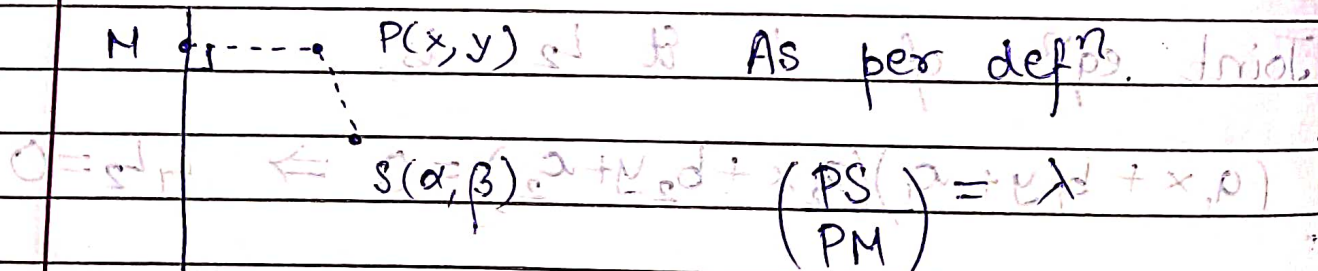 M P(x, y) As per defⁿ.
S(α, β) (PS/PM) = λ